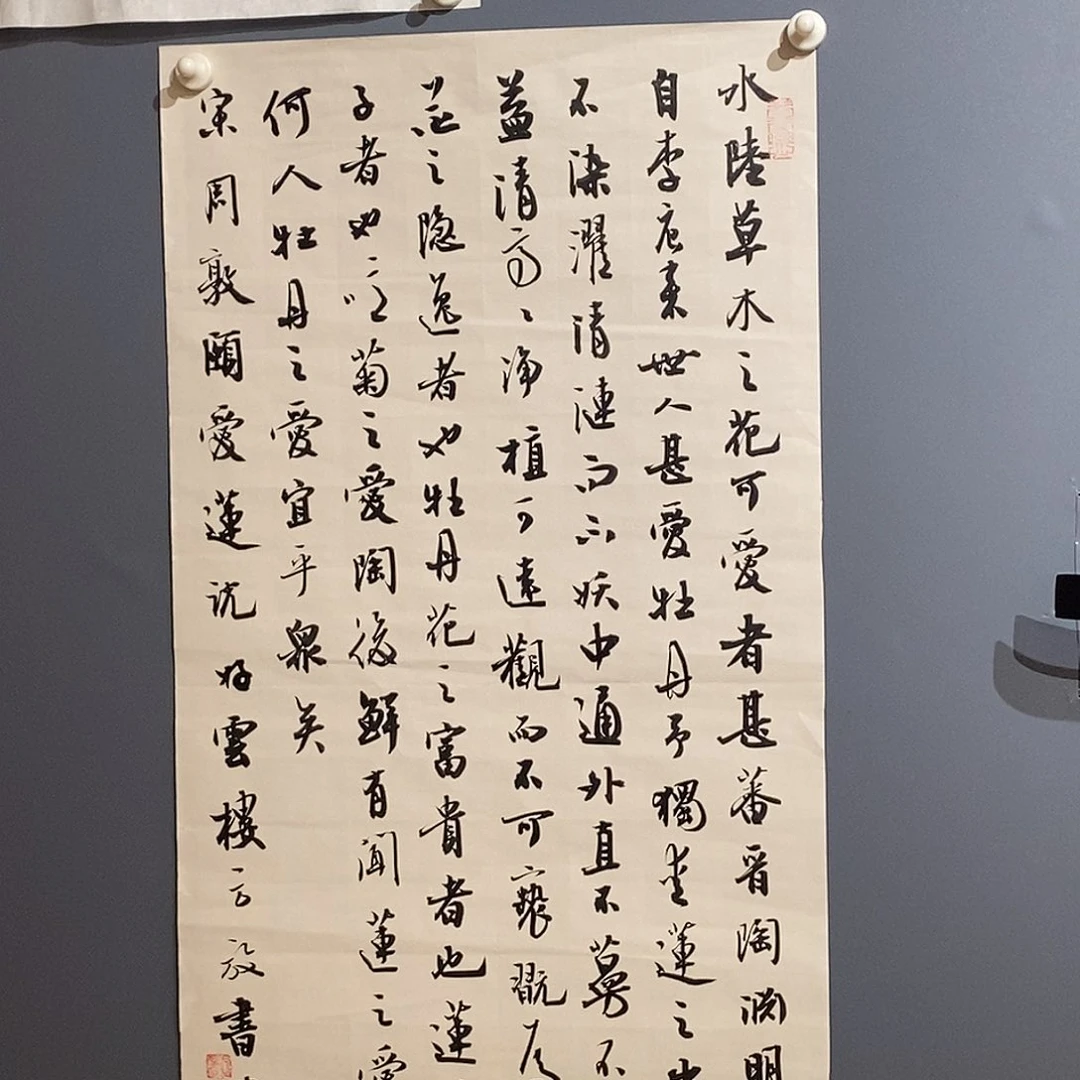 水陸草木之花可愛者甚蕃晉陶渊明
自李唐来世人甚愛牡丹予獨愛蓮之出
不染濯清漣而不妖中通外直不蔓不
益清亭〻净植可遠觀而不可褻翫焉
花之隐逸者也牡丹花之富貴者也蓮
子者也噫菊之愛陶後鮮有聞蓮之愛
何人牡丹之愛宜乎衆矣
宋周敦頤愛蓮説好雲樓一方放書